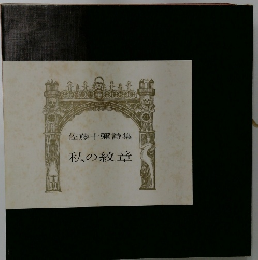 佐藤十彌詩集
私の紋章